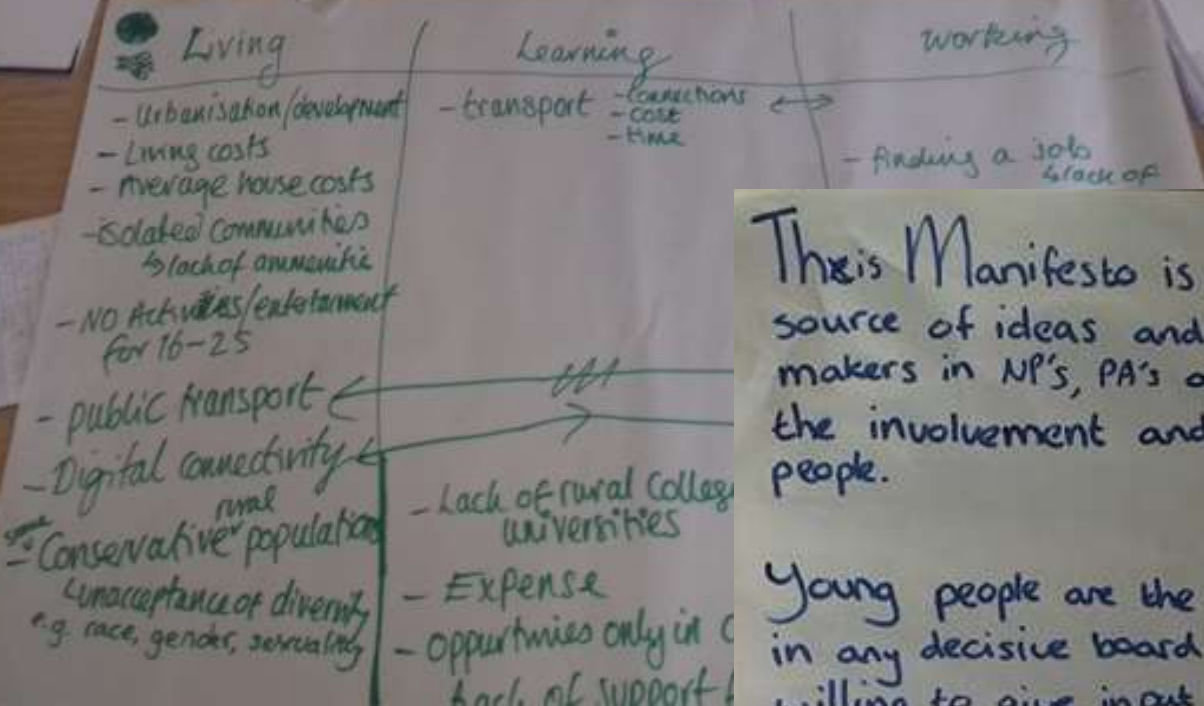 Living
- Urbanisation/development
- Living costs
- Average house costs
- isolated communities
↳ lack of ammenitie
- NO Activities/entertainment
for 16-25
- public transport
- Digital connectivity
rural
- Conservative population
↳ unacceptance of diversity
e.g. race, gender, sexuality
Learning
- transport - connections
- cost
- time
- Lack of rural Colleg
universities
- Expense
- oppurtunies only in C
Lack of support
working
- finding a job
↳ lack of
This Manifesto is
source of ideas and
makers in NP's, PA's o
the involvement and
people.
Young people are the
in any decisive board
willing to give input